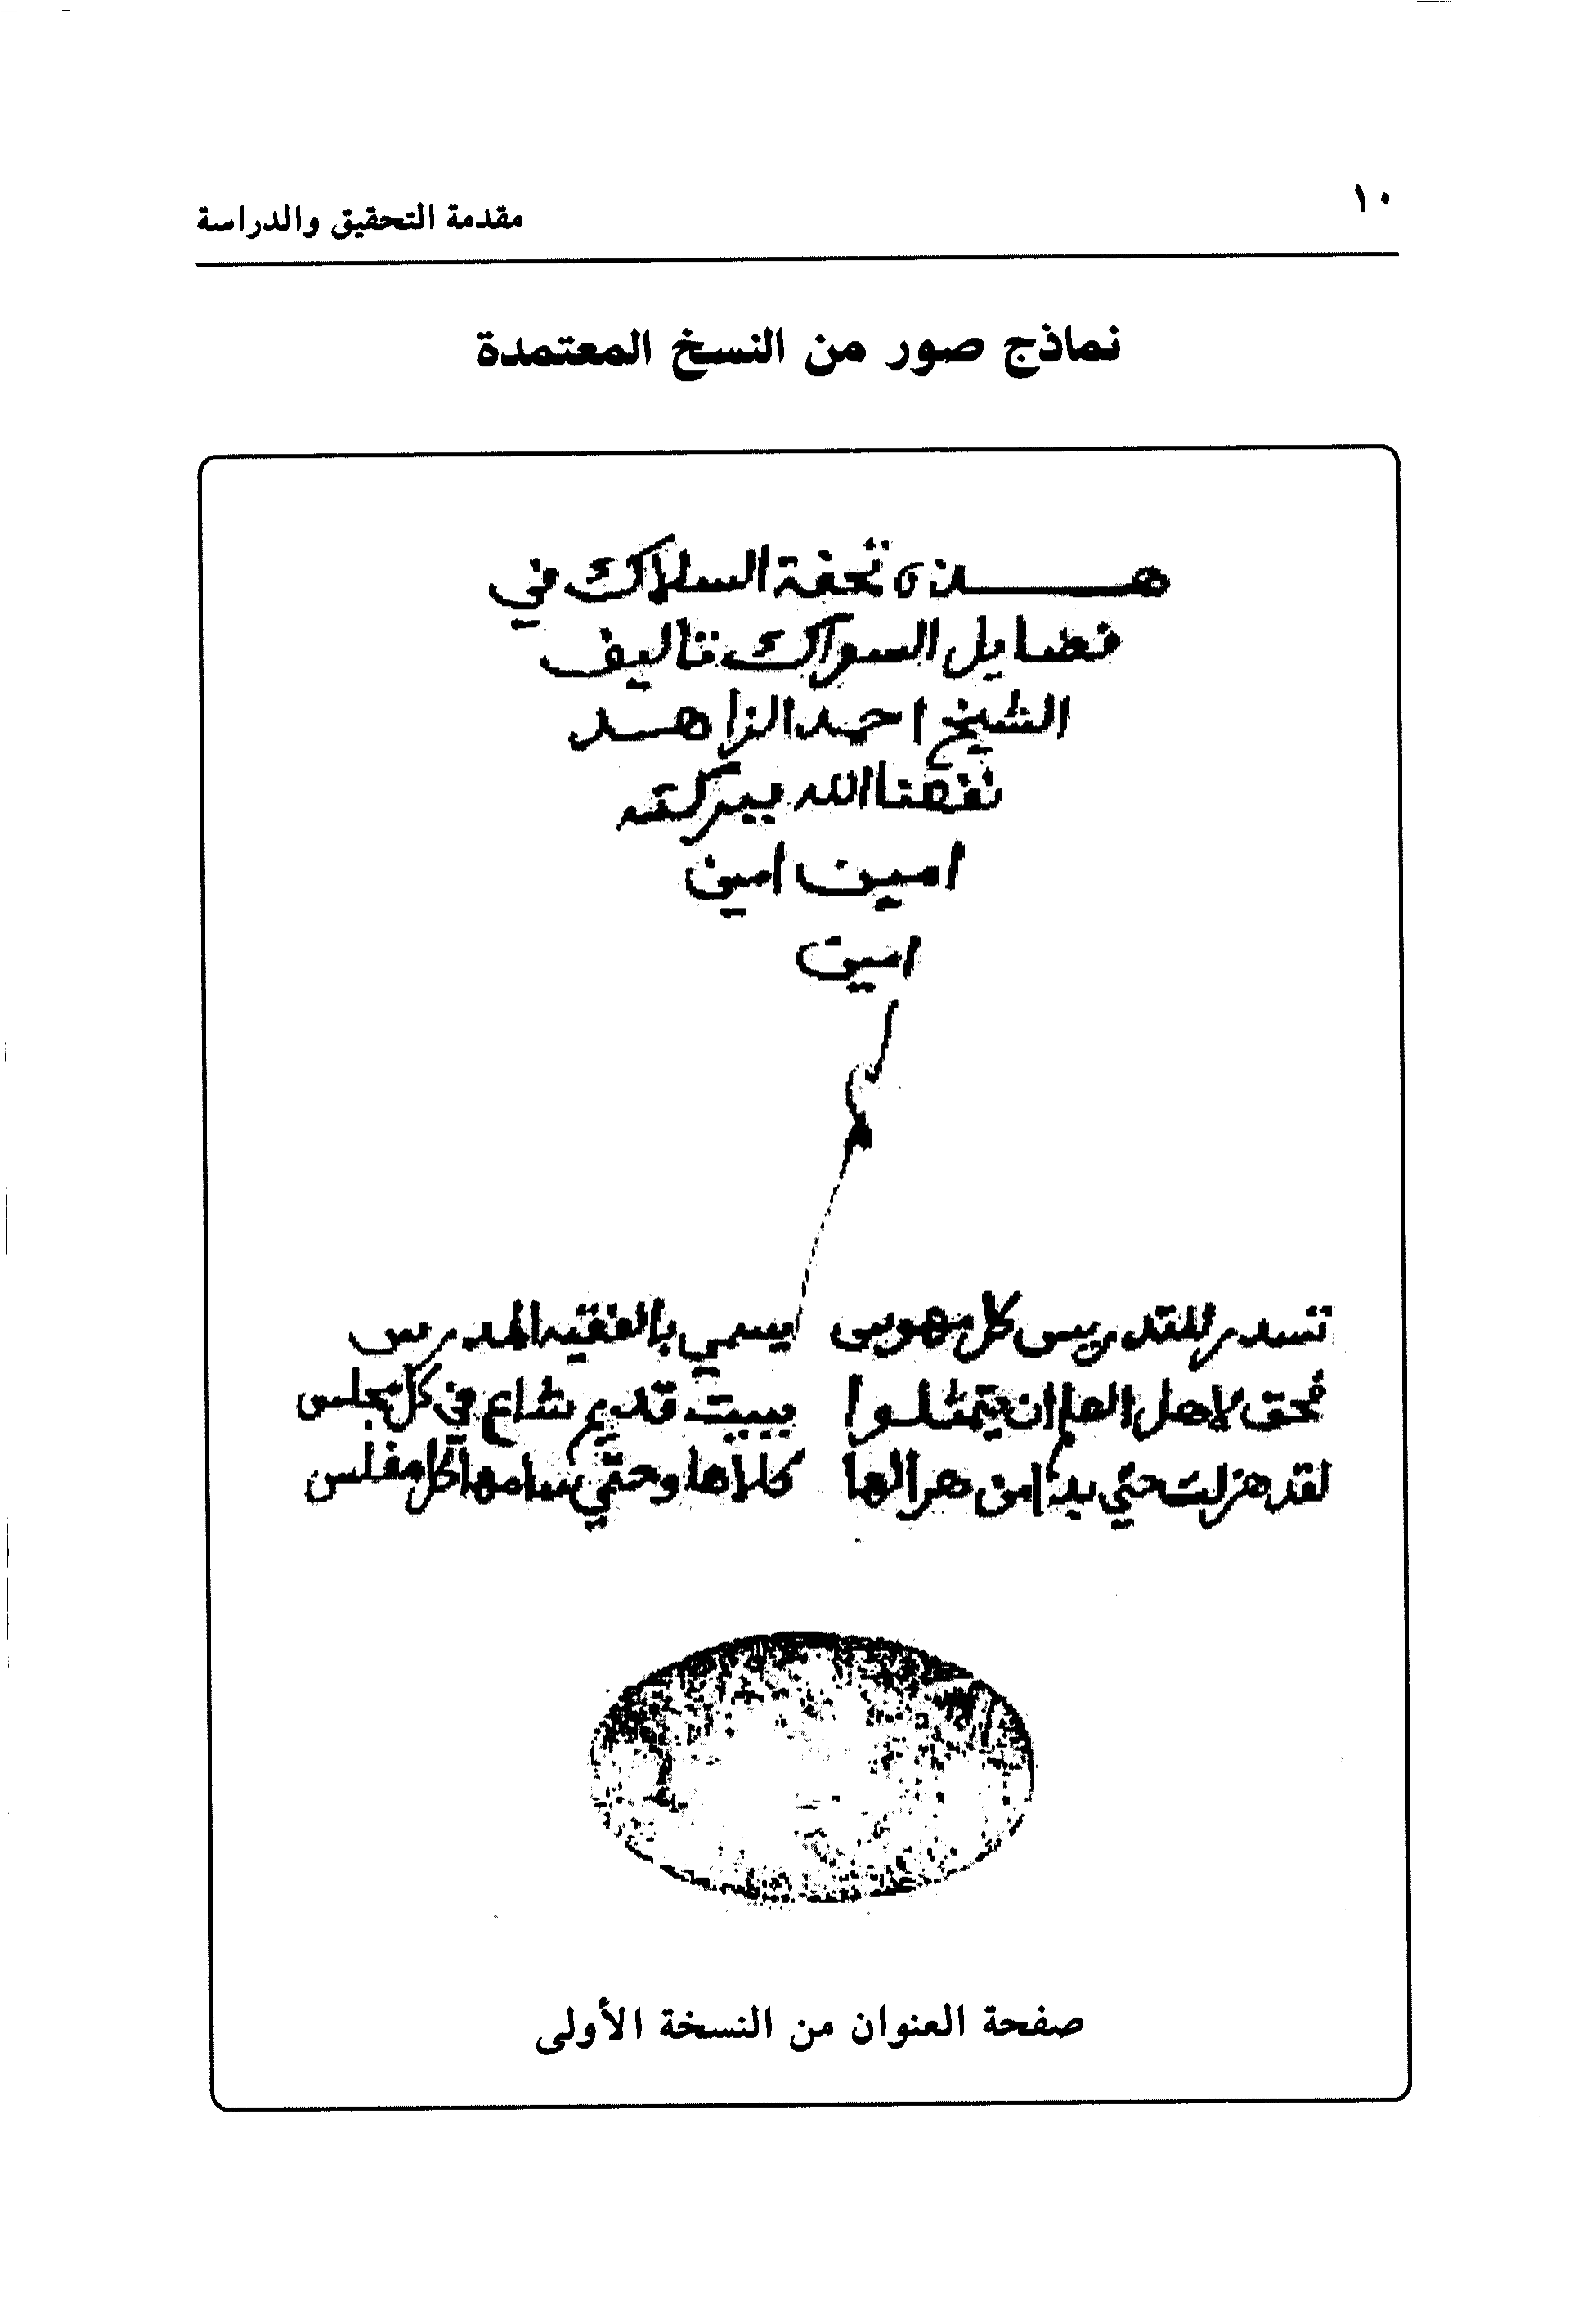 ١٠
مقدمة التحقيق والدراسة
نماذج صور من النسخ المعتمدة
هذه تحفة السلاك في
فضايل السواك تاليف
الشيخ احمد الزاهد
نفعنا الله ببركته
امين امين
امين
تسدر للتدريس كل مهوس يسمي بالفقيه المدرس
فحق لاهل العلم ان يتمثلوا ببيت قديم شاع في كل مجلس
لقد هزلت حتي بدا من هزالها كلاها وحتي سامها كل مفلس
صفحة العنوان من النسخة الأولى